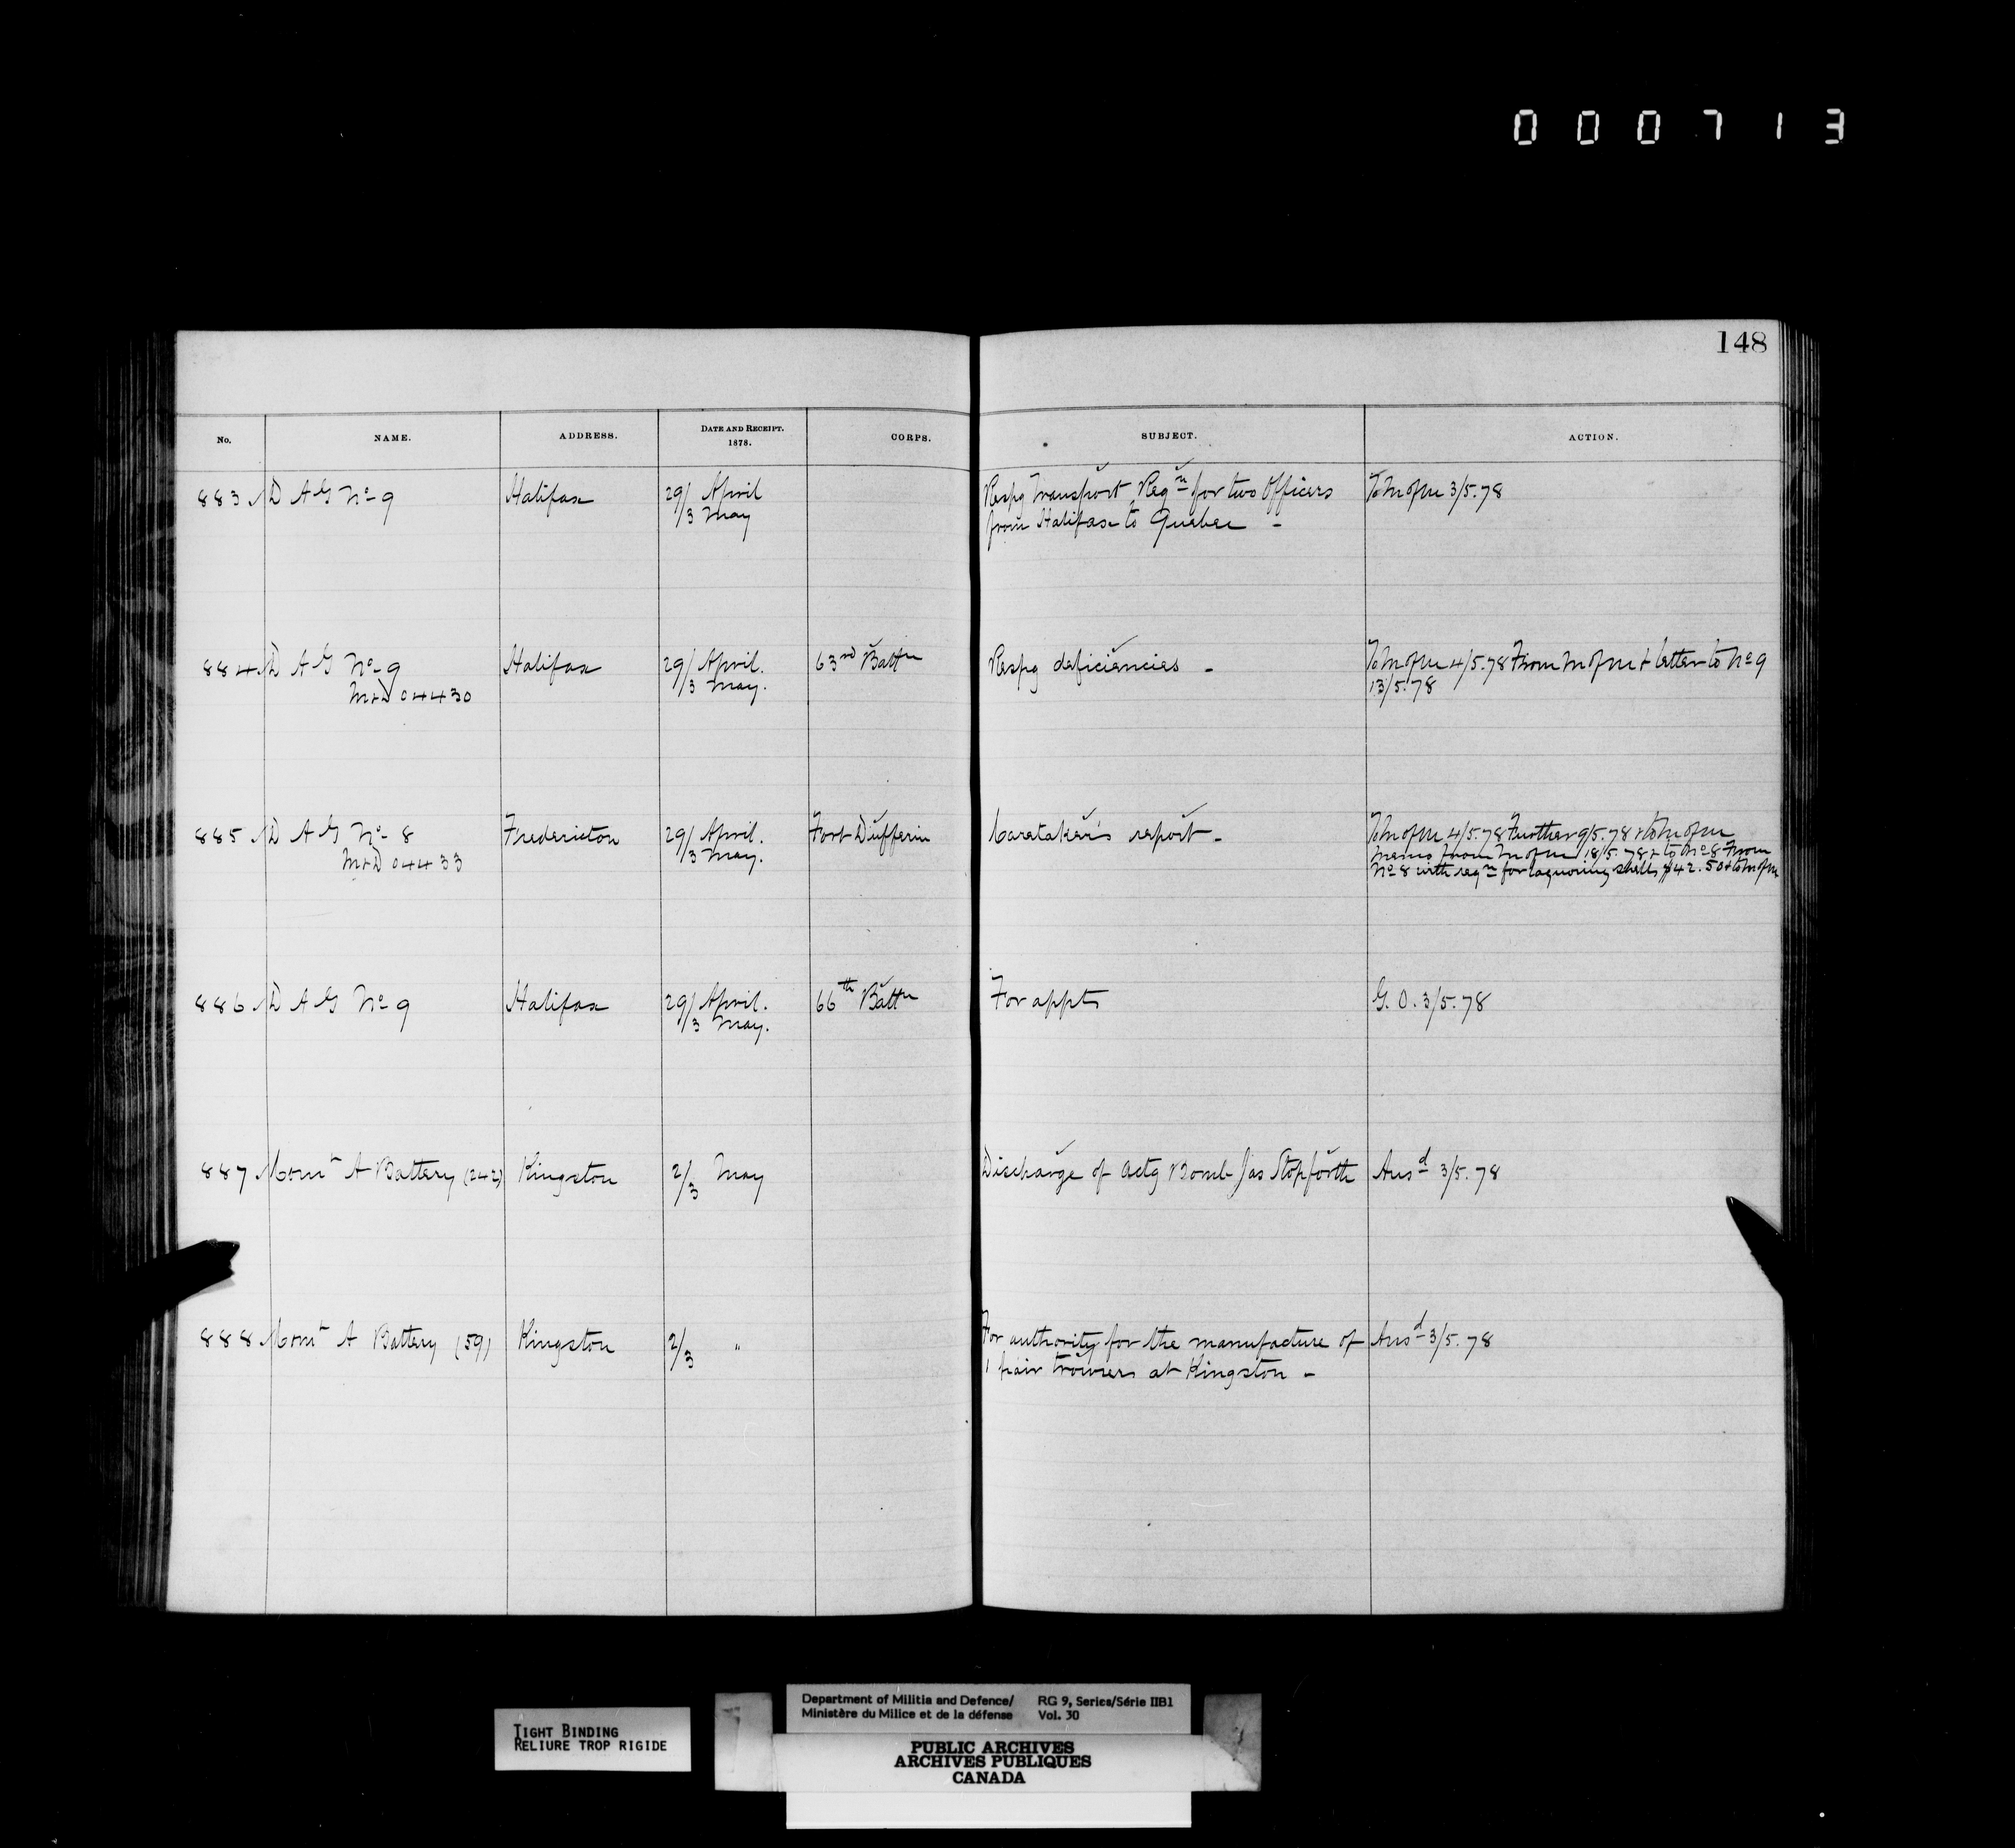 000713
148
No. NAME. ADDRESS. DATE AND RECEIPT. 1878. CORPS. SUBJECT. ACTION.
883 D A G No 9 Halifax 29/3 April May Respg Transport Reqn for two Officers from Halifax to Quebec - To M of M 3/5.78
884 D A G No 9 Halifax 29/ April. 63rd Battn Respg deficiencies - To M of M 4/5.78 From M of M & letter to No 9
M&D 04430 /3 May. 13/5.78
885 D A G No 8 Fredericton 29/ April. Fort Dufferin Caretaker's report - To M of M 4/5.78 Further 9/5.78 & to M of M
M&D 04433 /3 May. Memo from M of M 18/5.78 & to No 8 From
No 8 with reqn for laquoring shells $42.50 & to M of M
886 D A G No 9 Halifax 29/ April. 66th Battn For appts G.O. 3/5.78
/3 May.
887 Comt A Battery (242) Kingston 2/3 May Discharge of Actg Bomb Jas Stopforth Ansd 3/5.78
888 Comt A Battery (59) Kingston 2/3 " For authority for the manufacture of Ansd 3/5.78
1 pair trowsers at Kingston -
TIGHT BINDING
RELIURE TROP RIGIDE
Department of Militia and Defence/ RG 9, Series/Série IIB1
Ministère du Milice et de la défense Vol. 30
PUBLIC ARCHIVES
ARCHIVES PUBLIQUES
CANADA